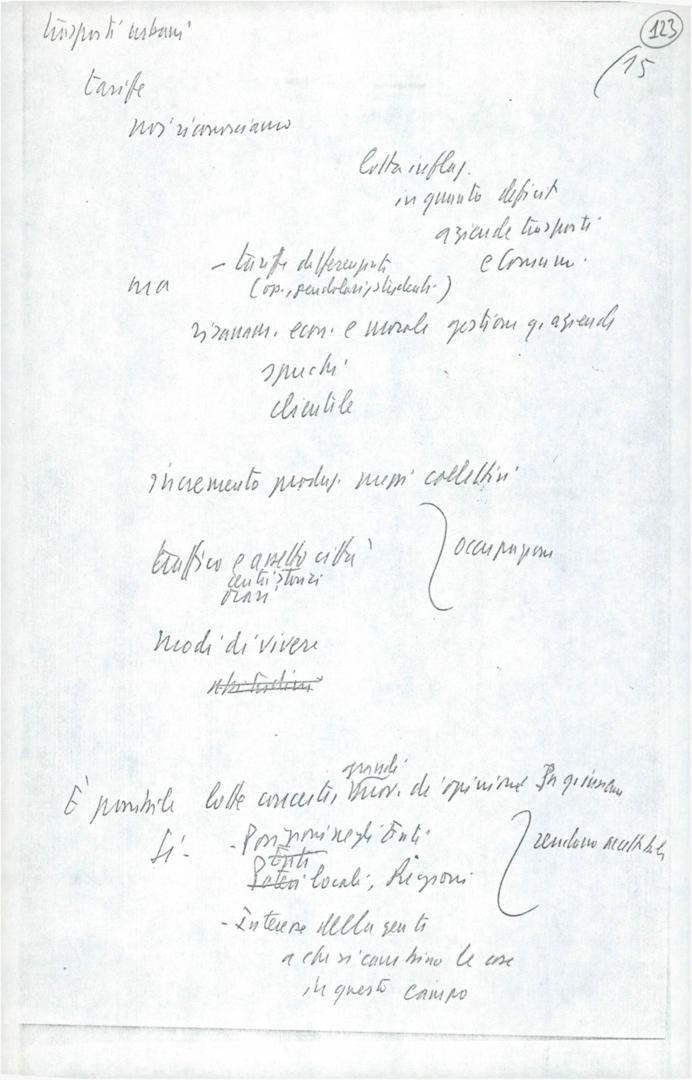 123
15
trasporti urbani
tariffe
noi riconosciamo
lotta inflaz.
in quanto deficit
aziende trasporti
e Comuni.
ma
- tariffe differenziate
(op., pendolari, studenti)
risanam. econ. e morale gestione aziende
sprechi
clientele
incremento produz. mezzi collettivi
traffico e assetto città
centri storici
orari
occupazione
modi di vivere
abitudini
grandi
È possibile lotte concrete, mov. di opinione
Sì -
- Posizioni negli Enti
Enti
Poteri locali, Regioni
rendono
- Interesse della gente
a che si cambino le cose
in questo campo